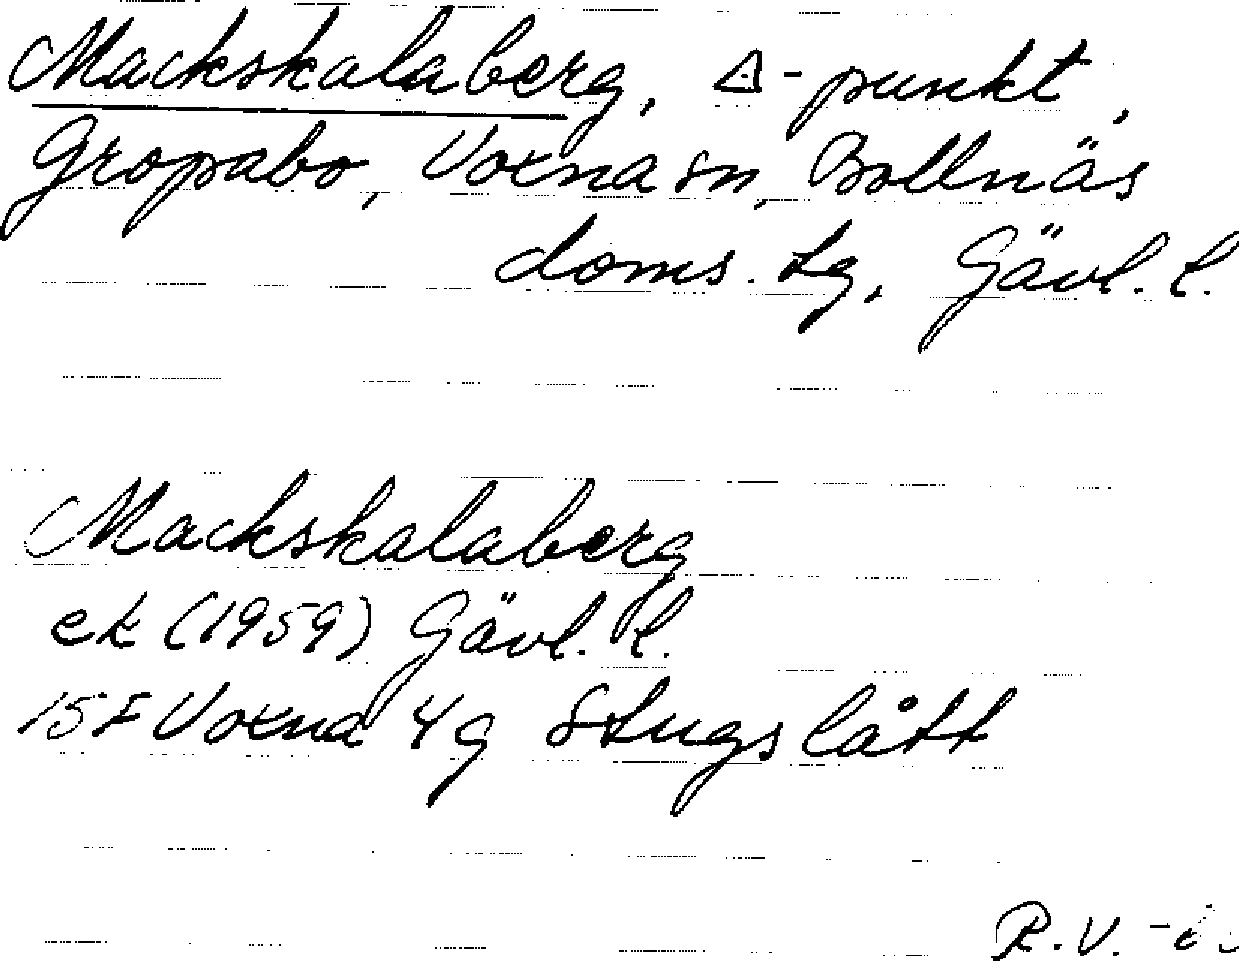 Mackskalaberg, △-punkt,
Gropabo, Voxna sn, Bollnäs
doms. tg, Gävl. l.
Mackskalaberg
ek (1959) Gävl. l.
15F Voxna 4g Stugslått
R.V.